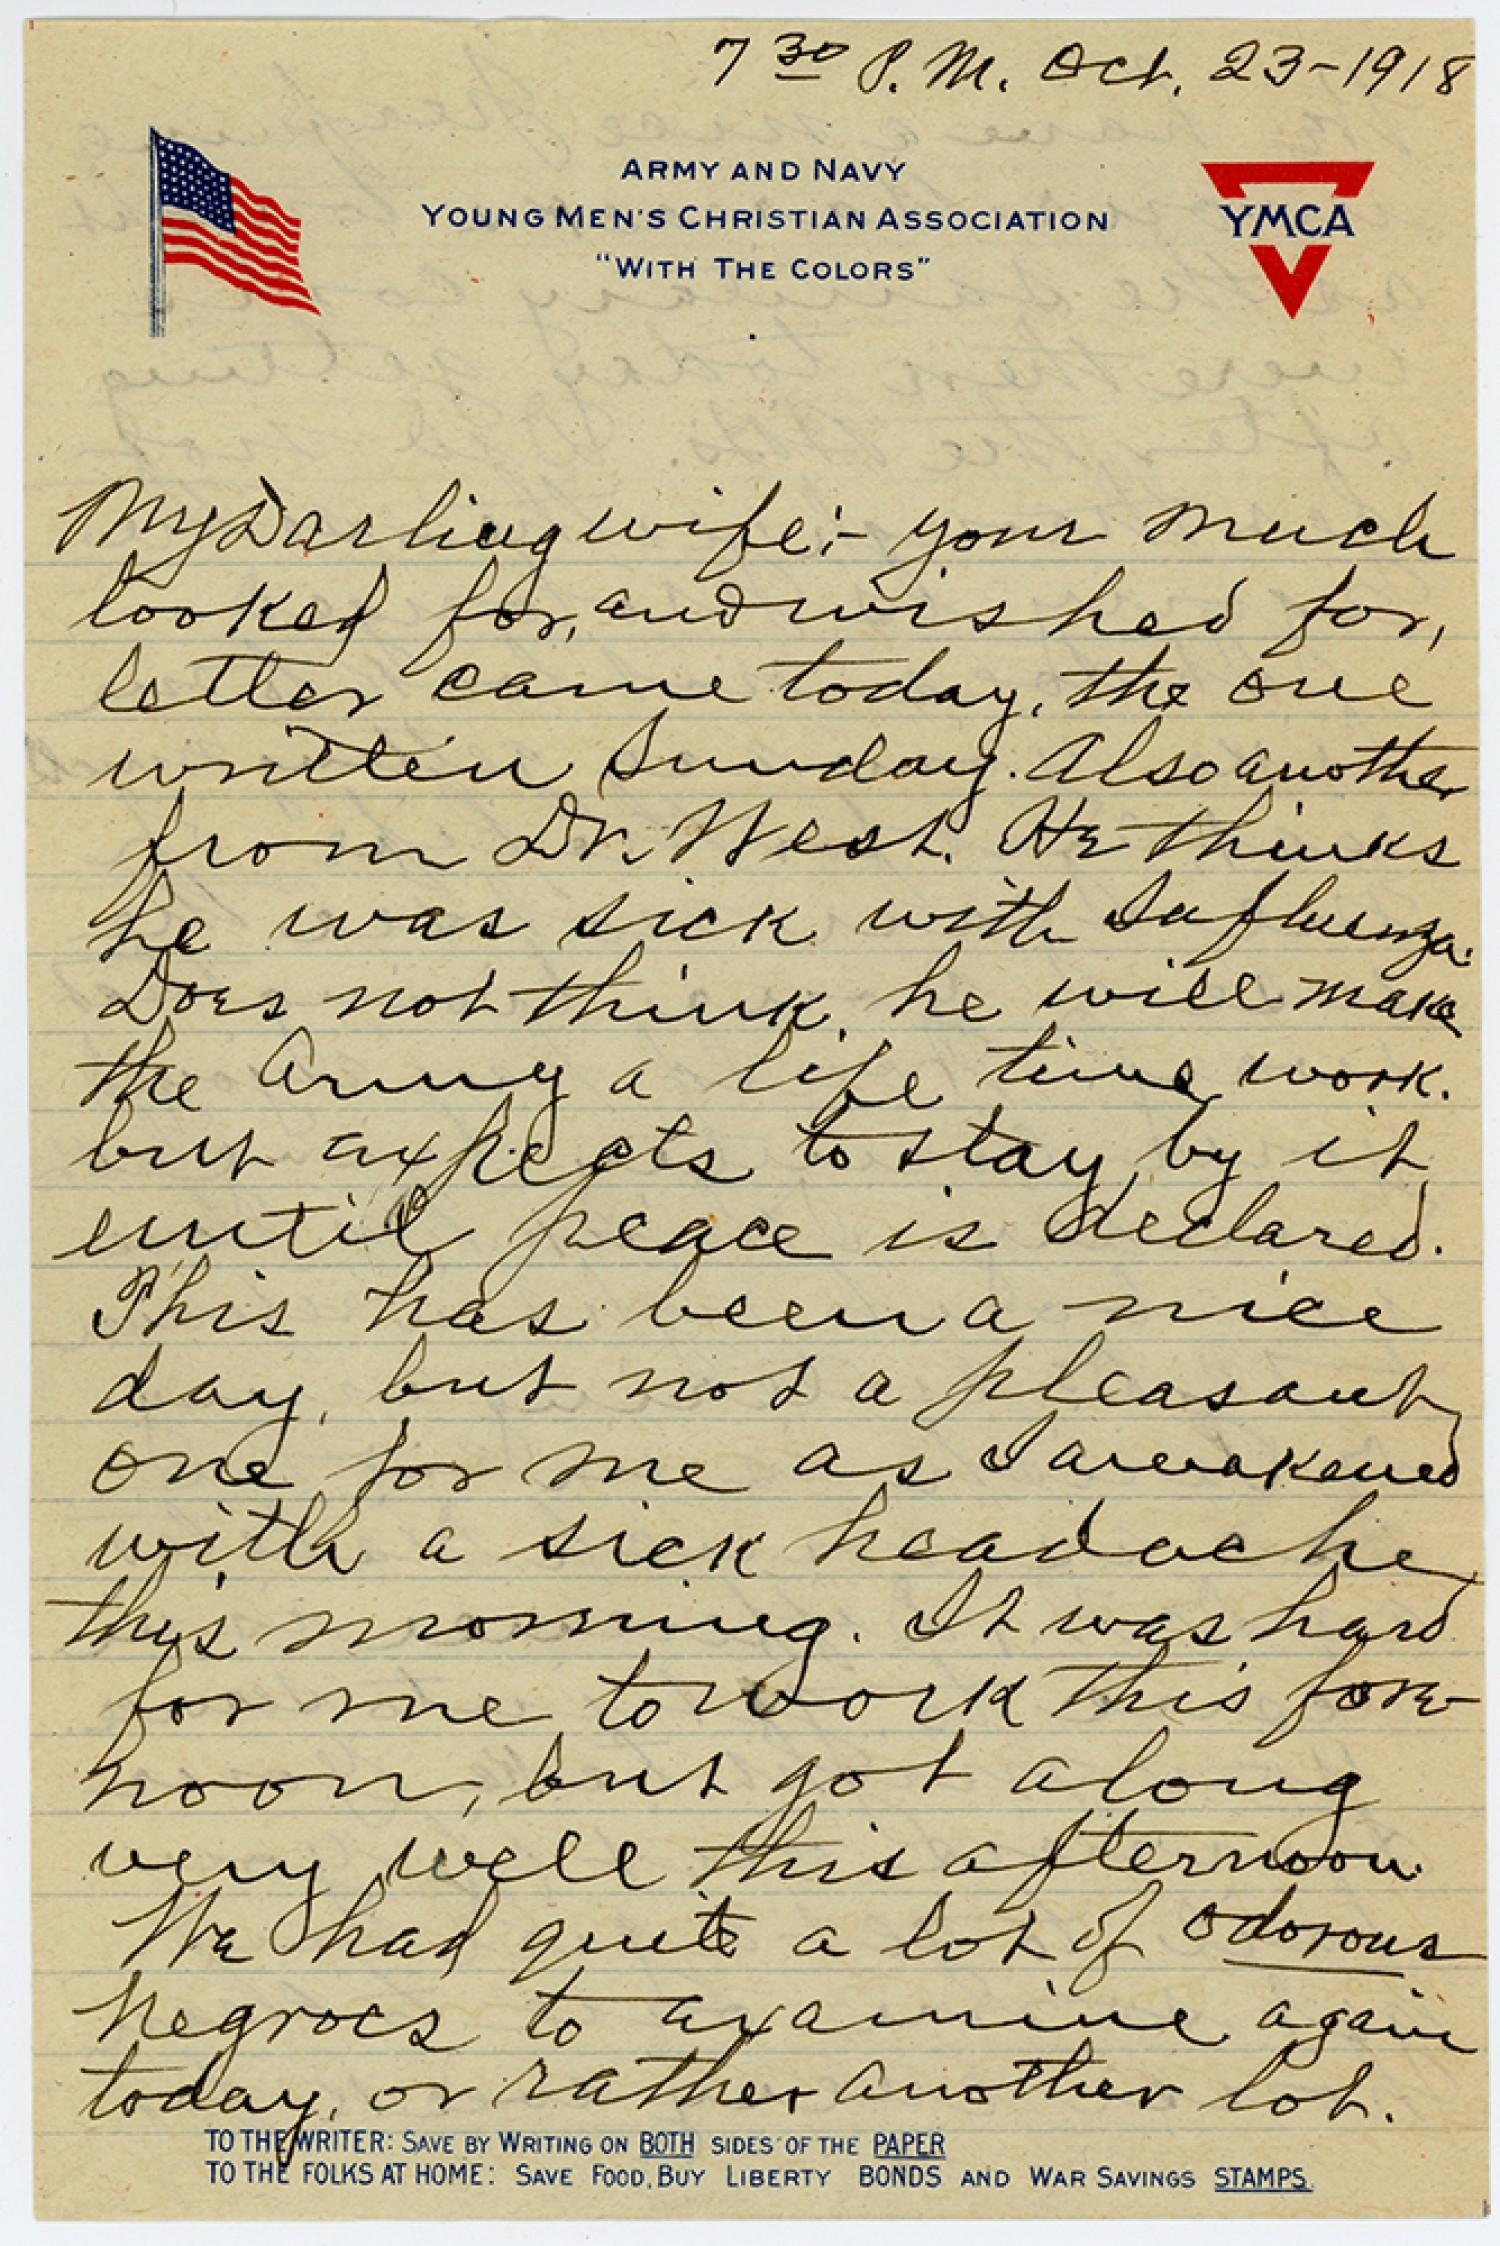 7 30 P.M. Oct. 23-1918
ARMY AND NAVY
YOUNG MEN'S CHRISTIAN ASSOCIATION
"WITH THE COLORS"
YMCA
My Darling wife:- your much
looked for, and wished for,
letter came today, the one
written Sunday. Also another
from Dr. West. He thinks
he was sick with Influenza.
Does not think he will make
the Army a life time work.
but expects to stay by it
until peace is declared.
This has been a nice
day, but not a pleasant
one for me as I awakened
with a sick headache
this morning. It was hard
for me to work this fore
noon, but got along
very well this afternoon.
We had quite a lot of odorous
negroes to examine again
today, or rather another lot.
TO THE WRITER: SAVE BY WRITING ON BOTH SIDES OF THE PAPER
TO THE FOLKS AT HOME: SAVE FOOD, BUY LIBERTY BONDS AND WAR SAVINGS STAMPS.